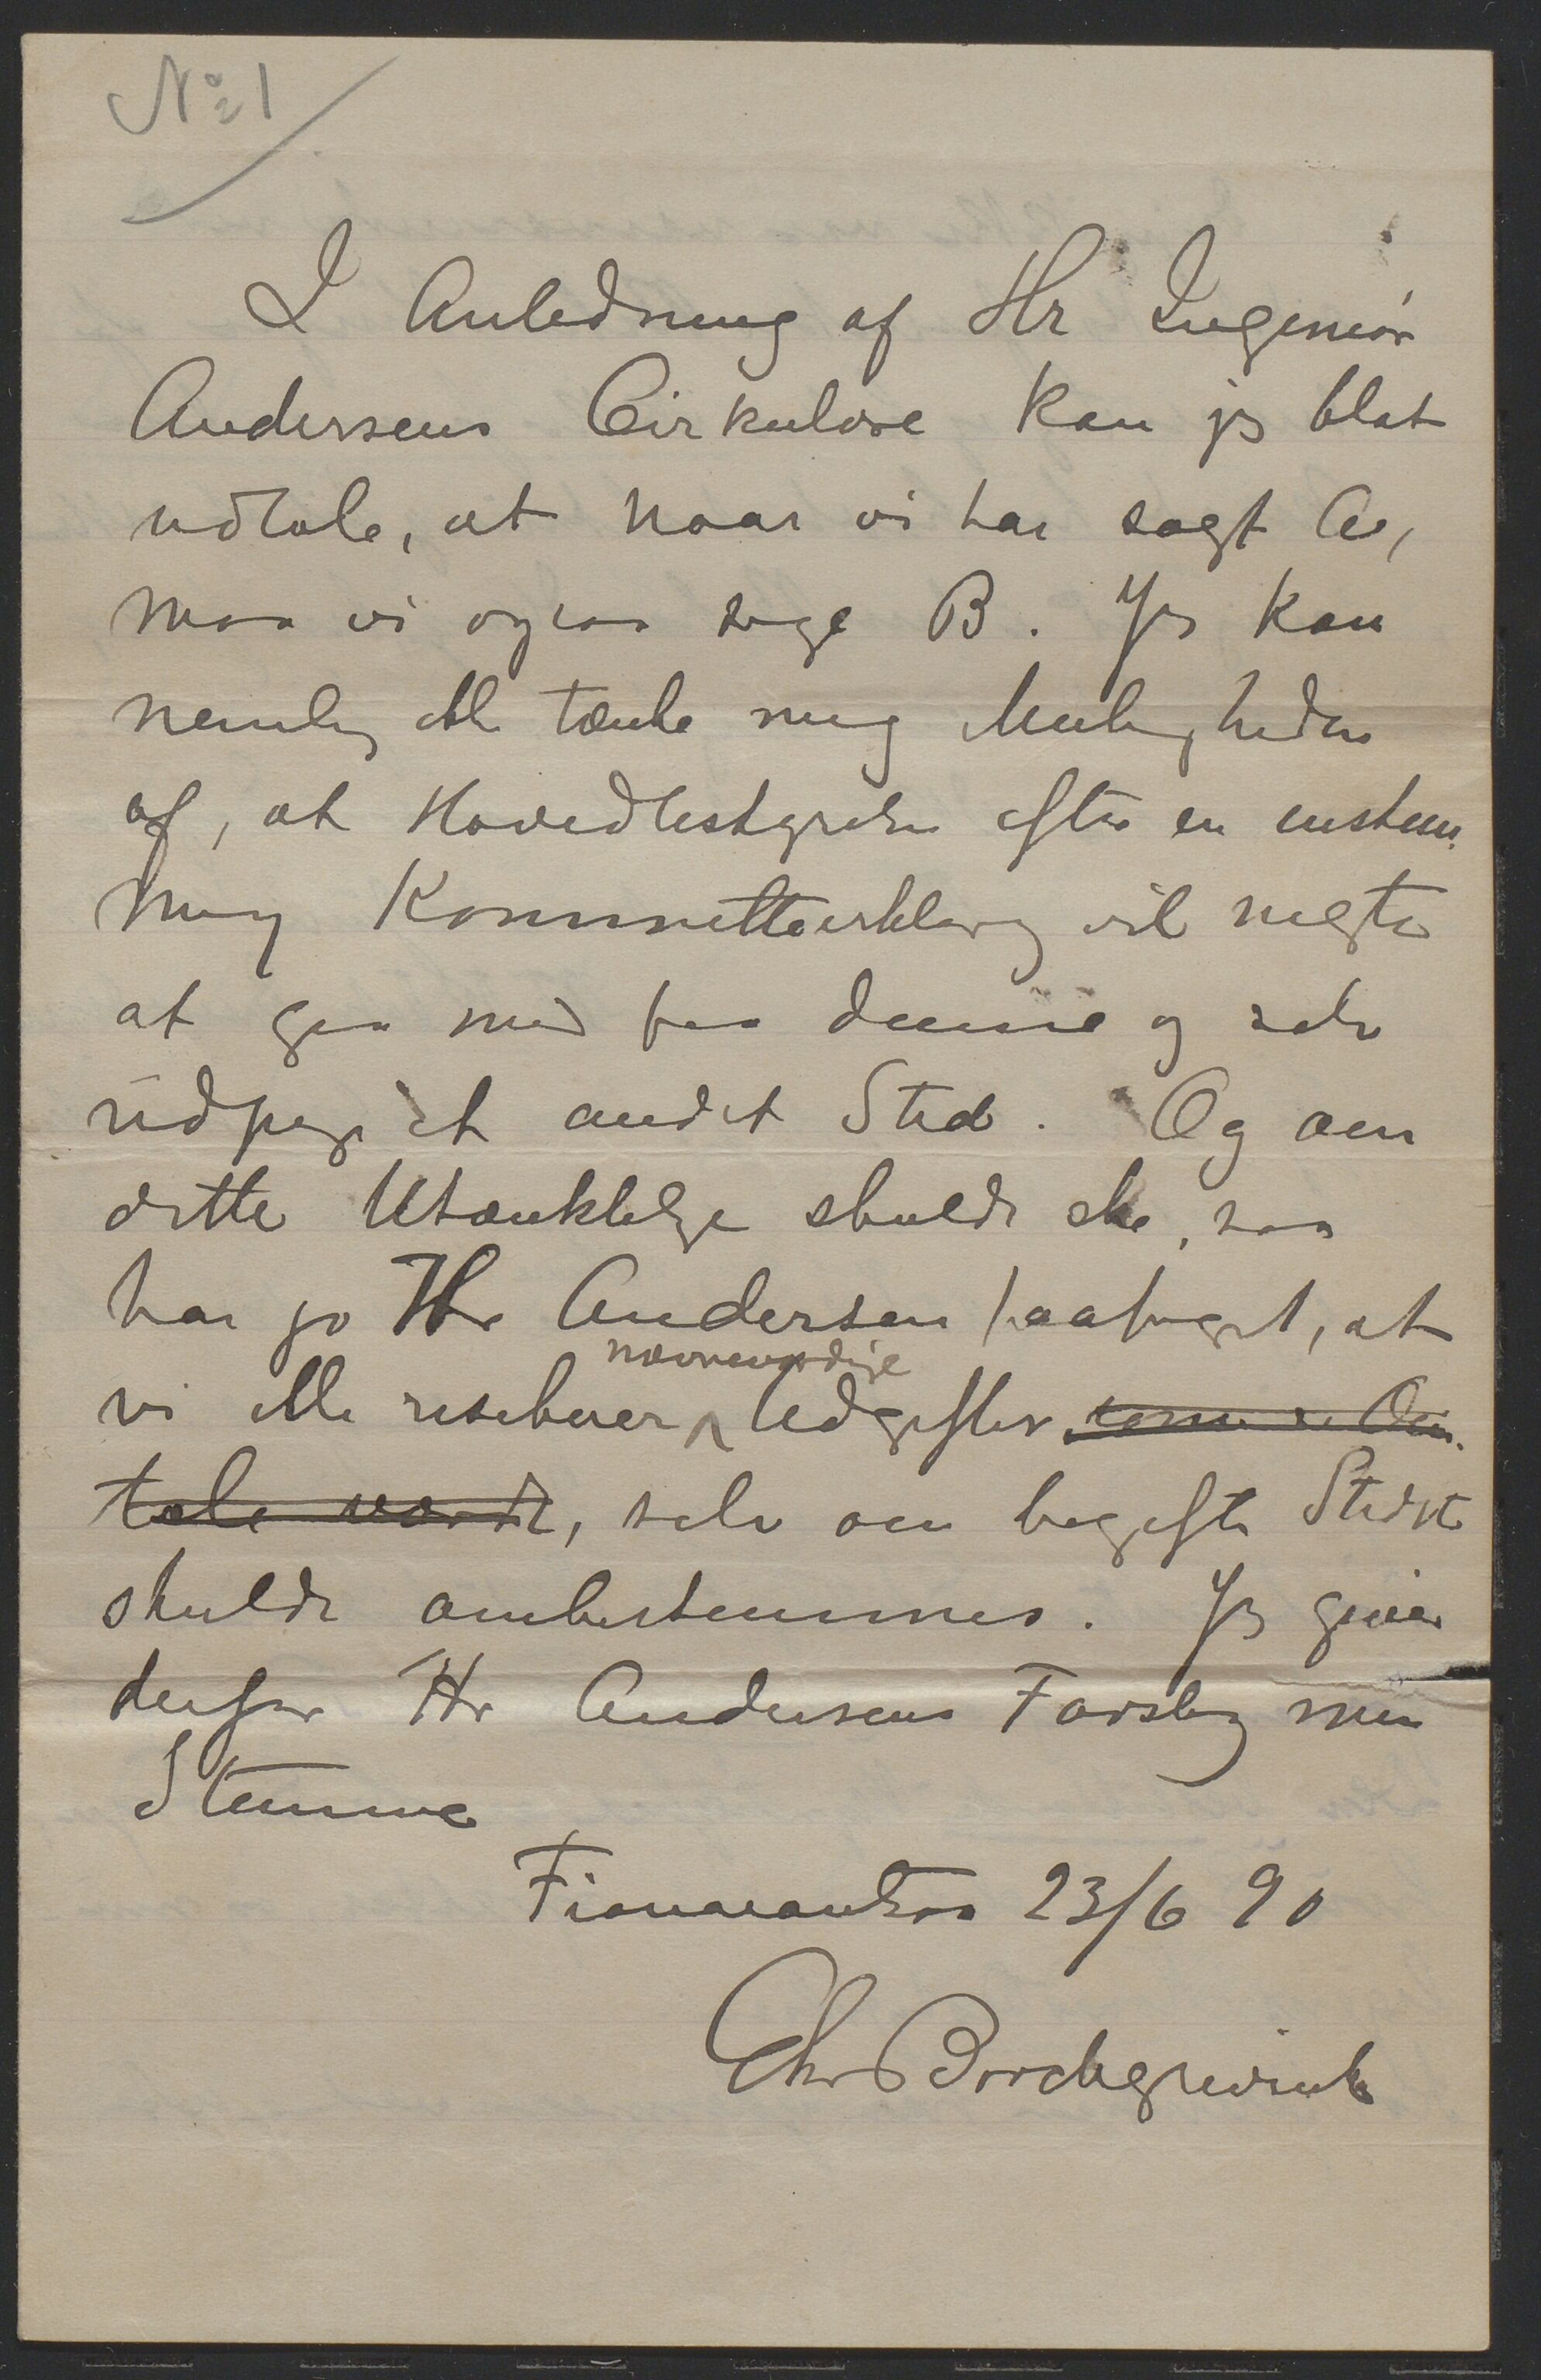 No 1
I Anledning af Hr Ingeniør
Andersens Cirkulære kan jeg blot
udtale, at naar vi har sagt A,
maa vi ogsaa sige B. Jeg kan
nemlig ikke tænke mig Muligheden
af, at Hovedbestyrelsen efter en enstem-
mig Kommitteerklæring vil negte
at gaa med paa denne og selv
udpege et andet Sted. Og om
dette Utænkelige skulde ske, saa
har jo Hr Andersen paapeget, at
nævneværdige
vi ikke risikerer Udgifter som er Om-
tale værdt, selv om bagefter Stedet
skulde ombestemmes. Jeg giver
derfor Hr Andersens Forslag min
Stemme
Fianarantsoa 23/6 90
Chr Borchgrevink